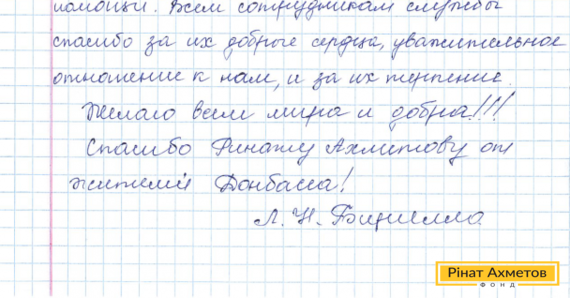 помощи. Всем сотрудникам службы
спасибо за их добрые сердца, уважительное
отношение к нам, и за их терпение.
Желаю всем мира и добра!!!
Спасибо Ринату Ахметову от
жителей Донбасса!
Л. Н.
Рінат Ахметов
ФОНД